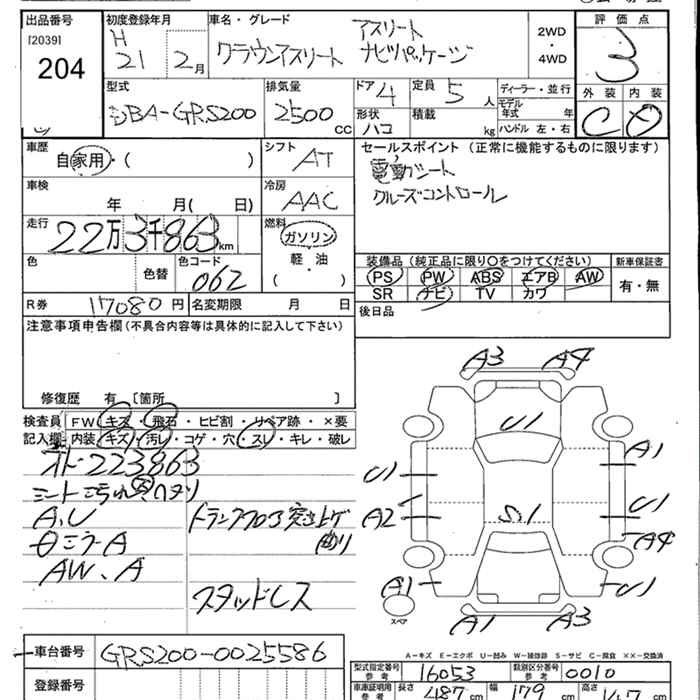 出品番号 初度登録年月 車名・グレード 評価点
[2039] H アスリート 2WD
204 21 2月 クラウンアスリート ナビパッケージ ・ 3
4WD
型式 排気量 ドア 4 定員 5人 ディーラー・並行 外装 内装
DBA-GRS200 2500cc 形状 ハコ 積載 kg モデル年式 年 C D
ハンドル 左・右
車歴 自家用・( ) シフト AT セールスポイント (正常に機能するものに限ります)
電動シート
車検 年 月( 日) 冷房 AAC クルーズコントロール
走行 22万3千863km 燃料 ガソリン
軽・油
( )
色 色替 色コード 062
装備品 (純正品に限り○をつけてください) 新車保証書
PS PW ABS エアB AW 有・無
SR ナビ TV カワ
R券 17080円 名変期限 月 日 後日品
注意事項申告欄 (不具合内容等は具体的に記入して下さい)
修復歴 有 [箇所 ]
検査員 FW キズ・飛石・ヒビ割・リペア跡・×要
記入欄 内装 キズ・汚レ・コゲ・穴・スレ・キレ・破レ
オド223863
シート汚れ ヘタリ
A,U トランクフロア突上ゲ
ミラーA
AW、A
スタッドレス
A3 A4
U1
U1 A1
S1
A2 U1
A4
A1 U1
A1 A3
スペア
A-キズ E-エクボ U-凹み W-補修跡 S-サビ C-腐食 ××-交換済
車台番号 GRS200-0025586
登録番号
型式指定番号 参考 16053 類別区分番号 参考 0010
車庫証明用 参考 長さ 487cm 幅 179cm 高さ 147cm